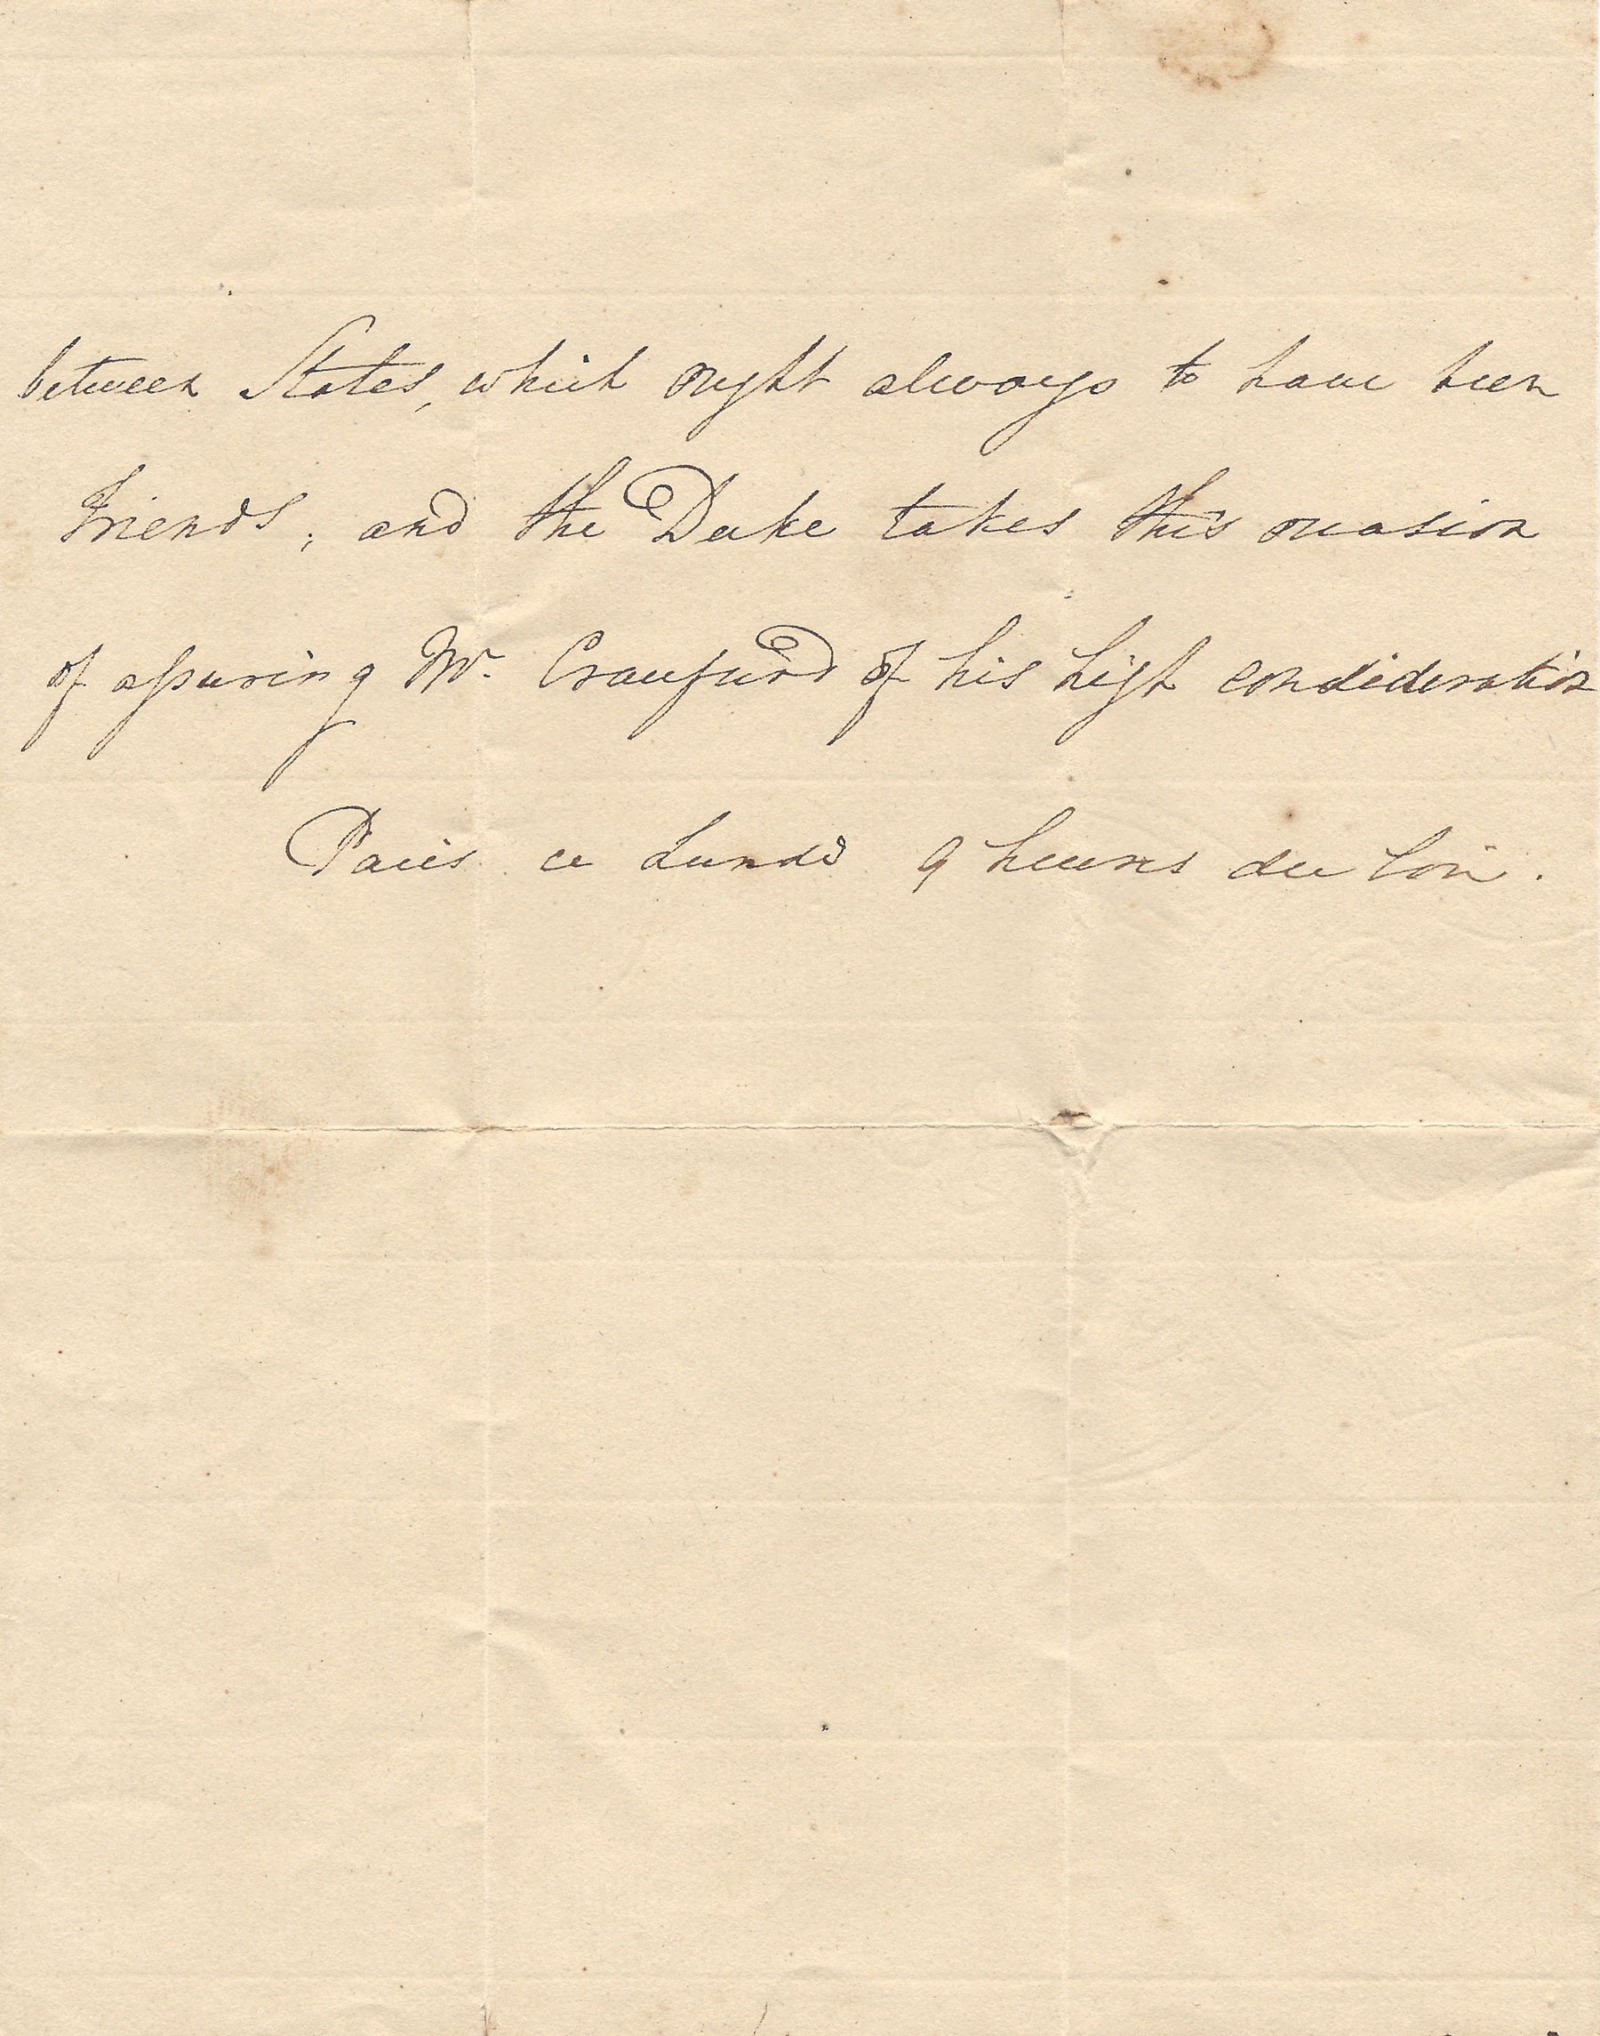 between States, which ought always to have been
Friends; and the Duke takes this occasion
of assuring Mr. Craufurd of his high consideration
Paris ce Lundi 9 heures du soir.